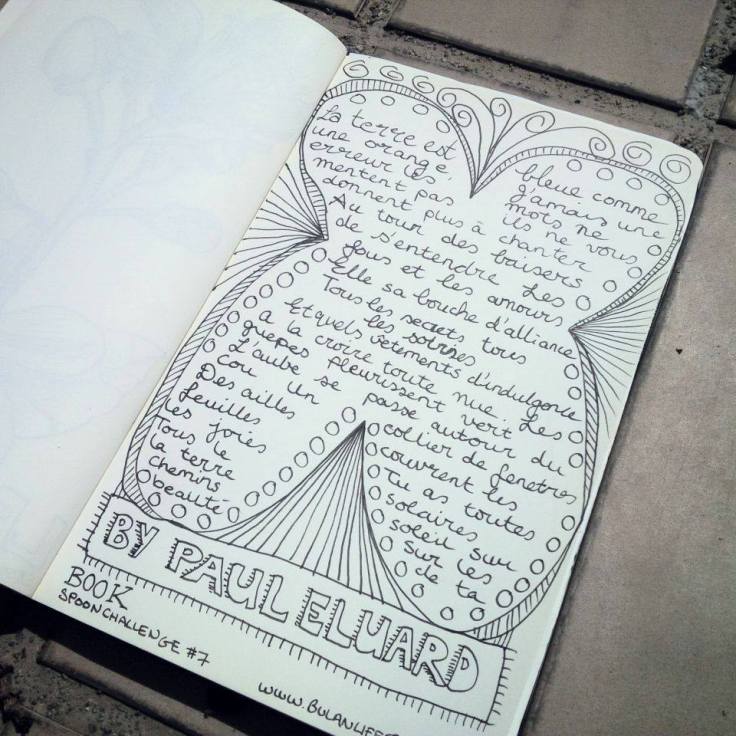 La terre est bleue comme
une orange Jamais une
erreur les mots ne
mentent pas ils ne vous
donnent plus à chanter
Au tour des baisers
de s'entendre Les
fous et les amours
Elle sa bouche d'alliance
Tous les secrets tous
les
Et quels vêtements d'indulgence
a la croire toute nue. Les
guepes fleurissent vert
L'aube se passe autour du
cou un collier de fenetres
Des ailles couvrent les
feuilles Tu as toutes
les joies solaires
Tous le soleil sur
la terre sur les
chemins de ta
beauté
BY PAUL ELUARD
BOOK
SPOONCHALLENGE #7
WWW.BULANLIFE